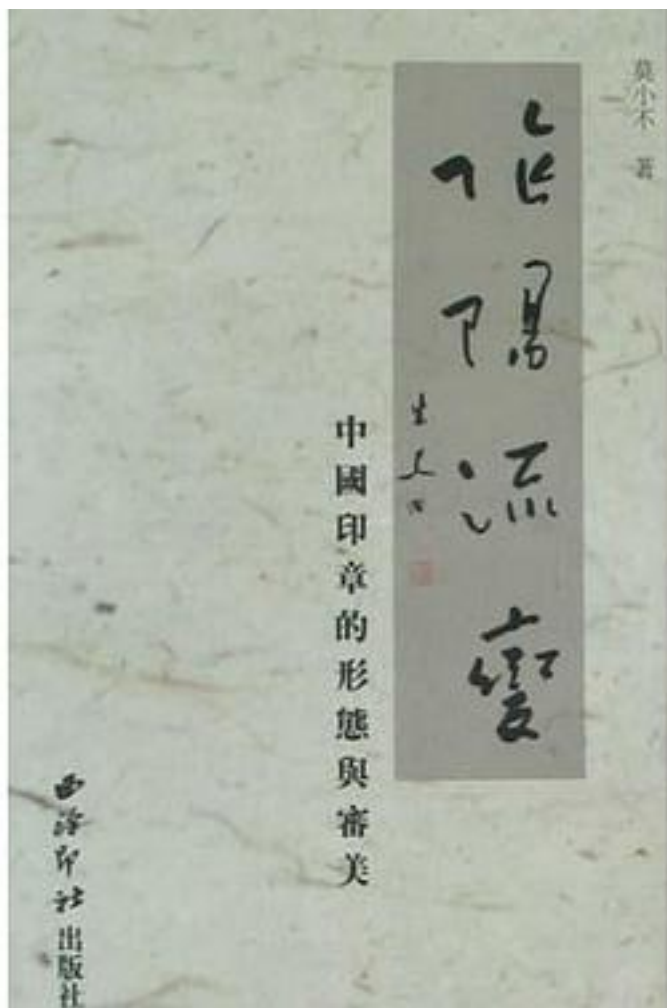 莫小不 著
陰陽流變
中國印章的形態與審美
西泠印社出版社